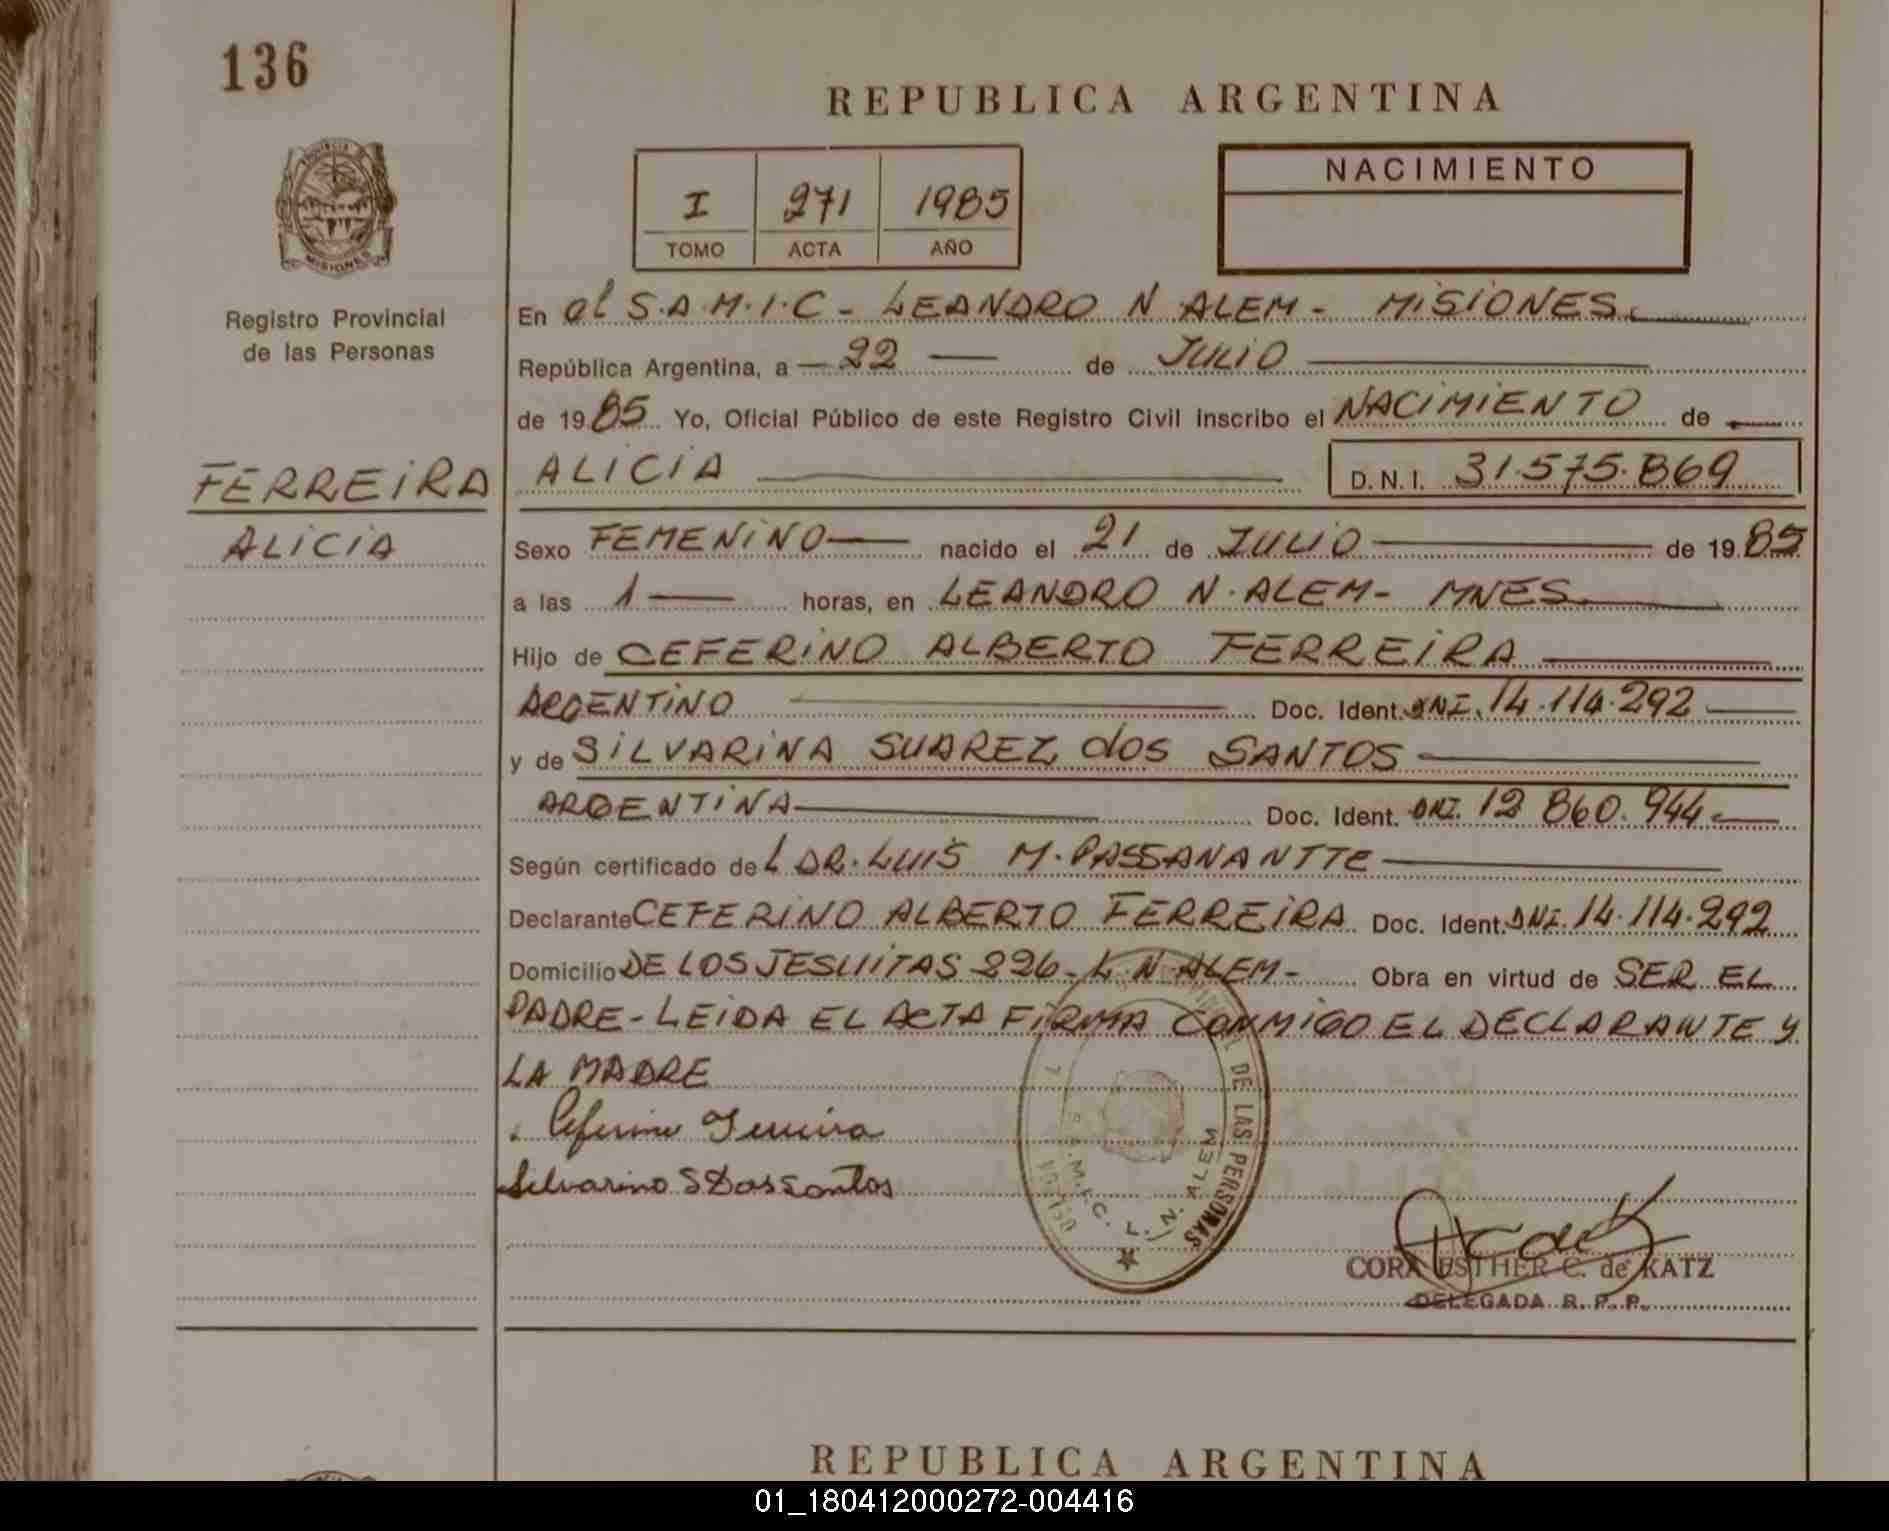 136
REPUBLICA ARGENTINA
I 271 1985
TOMO ACTA AÑO
NACIMIENTO
MISIONES
Registro Provincial
de las Personas
FERREIRA
ALICIA
En el S.A.M.I.C - LEANDRO N. ALEM - MISIONES.
República Argentina, a - 22 - de JULIO
de 1985 Yo, Oficial Público de este Registro Civil inscribo el NACIMIENTO de
ALICIA D.N.I. 31.575.869
Sexo FEMENINO nacido el 21 de JULIO de 1985
a las 1 horas, en LEANDRO N. ALEM - MNES.
Hijo de CEFERINO ALBERTO FERREIRA
ARGENTINO Doc. Ident. DNI. 14.114.292
y de SILVARINA SUAREZ dos SANTOS
ARGENTINA Doc. Ident. DNI. 12 860.944
Según certificado del DR. LUIS M. PASSANANTTE
Declarante CEFERINO ALBERTO FERREIRA Doc. Ident. DNI. 14.114.292
Domicilio DE LOS JESUITAS 226 - L.N. ALEM - Obra en virtud de SER EL
PADRE - LEIDA EL ACTA FIRMA CONMIGO EL DECLARANTE Y
LA MADRE
Ceferino Ferreira
Silvarino S Dos Santos
DE LAS PERSONAS
S.A.M.I.C. L. N. ALEM
CORA ESTHER C. de KATZ
DELEGADA R. P. P.
REPUBLICA ARGENTINA
01_180412000272-004416